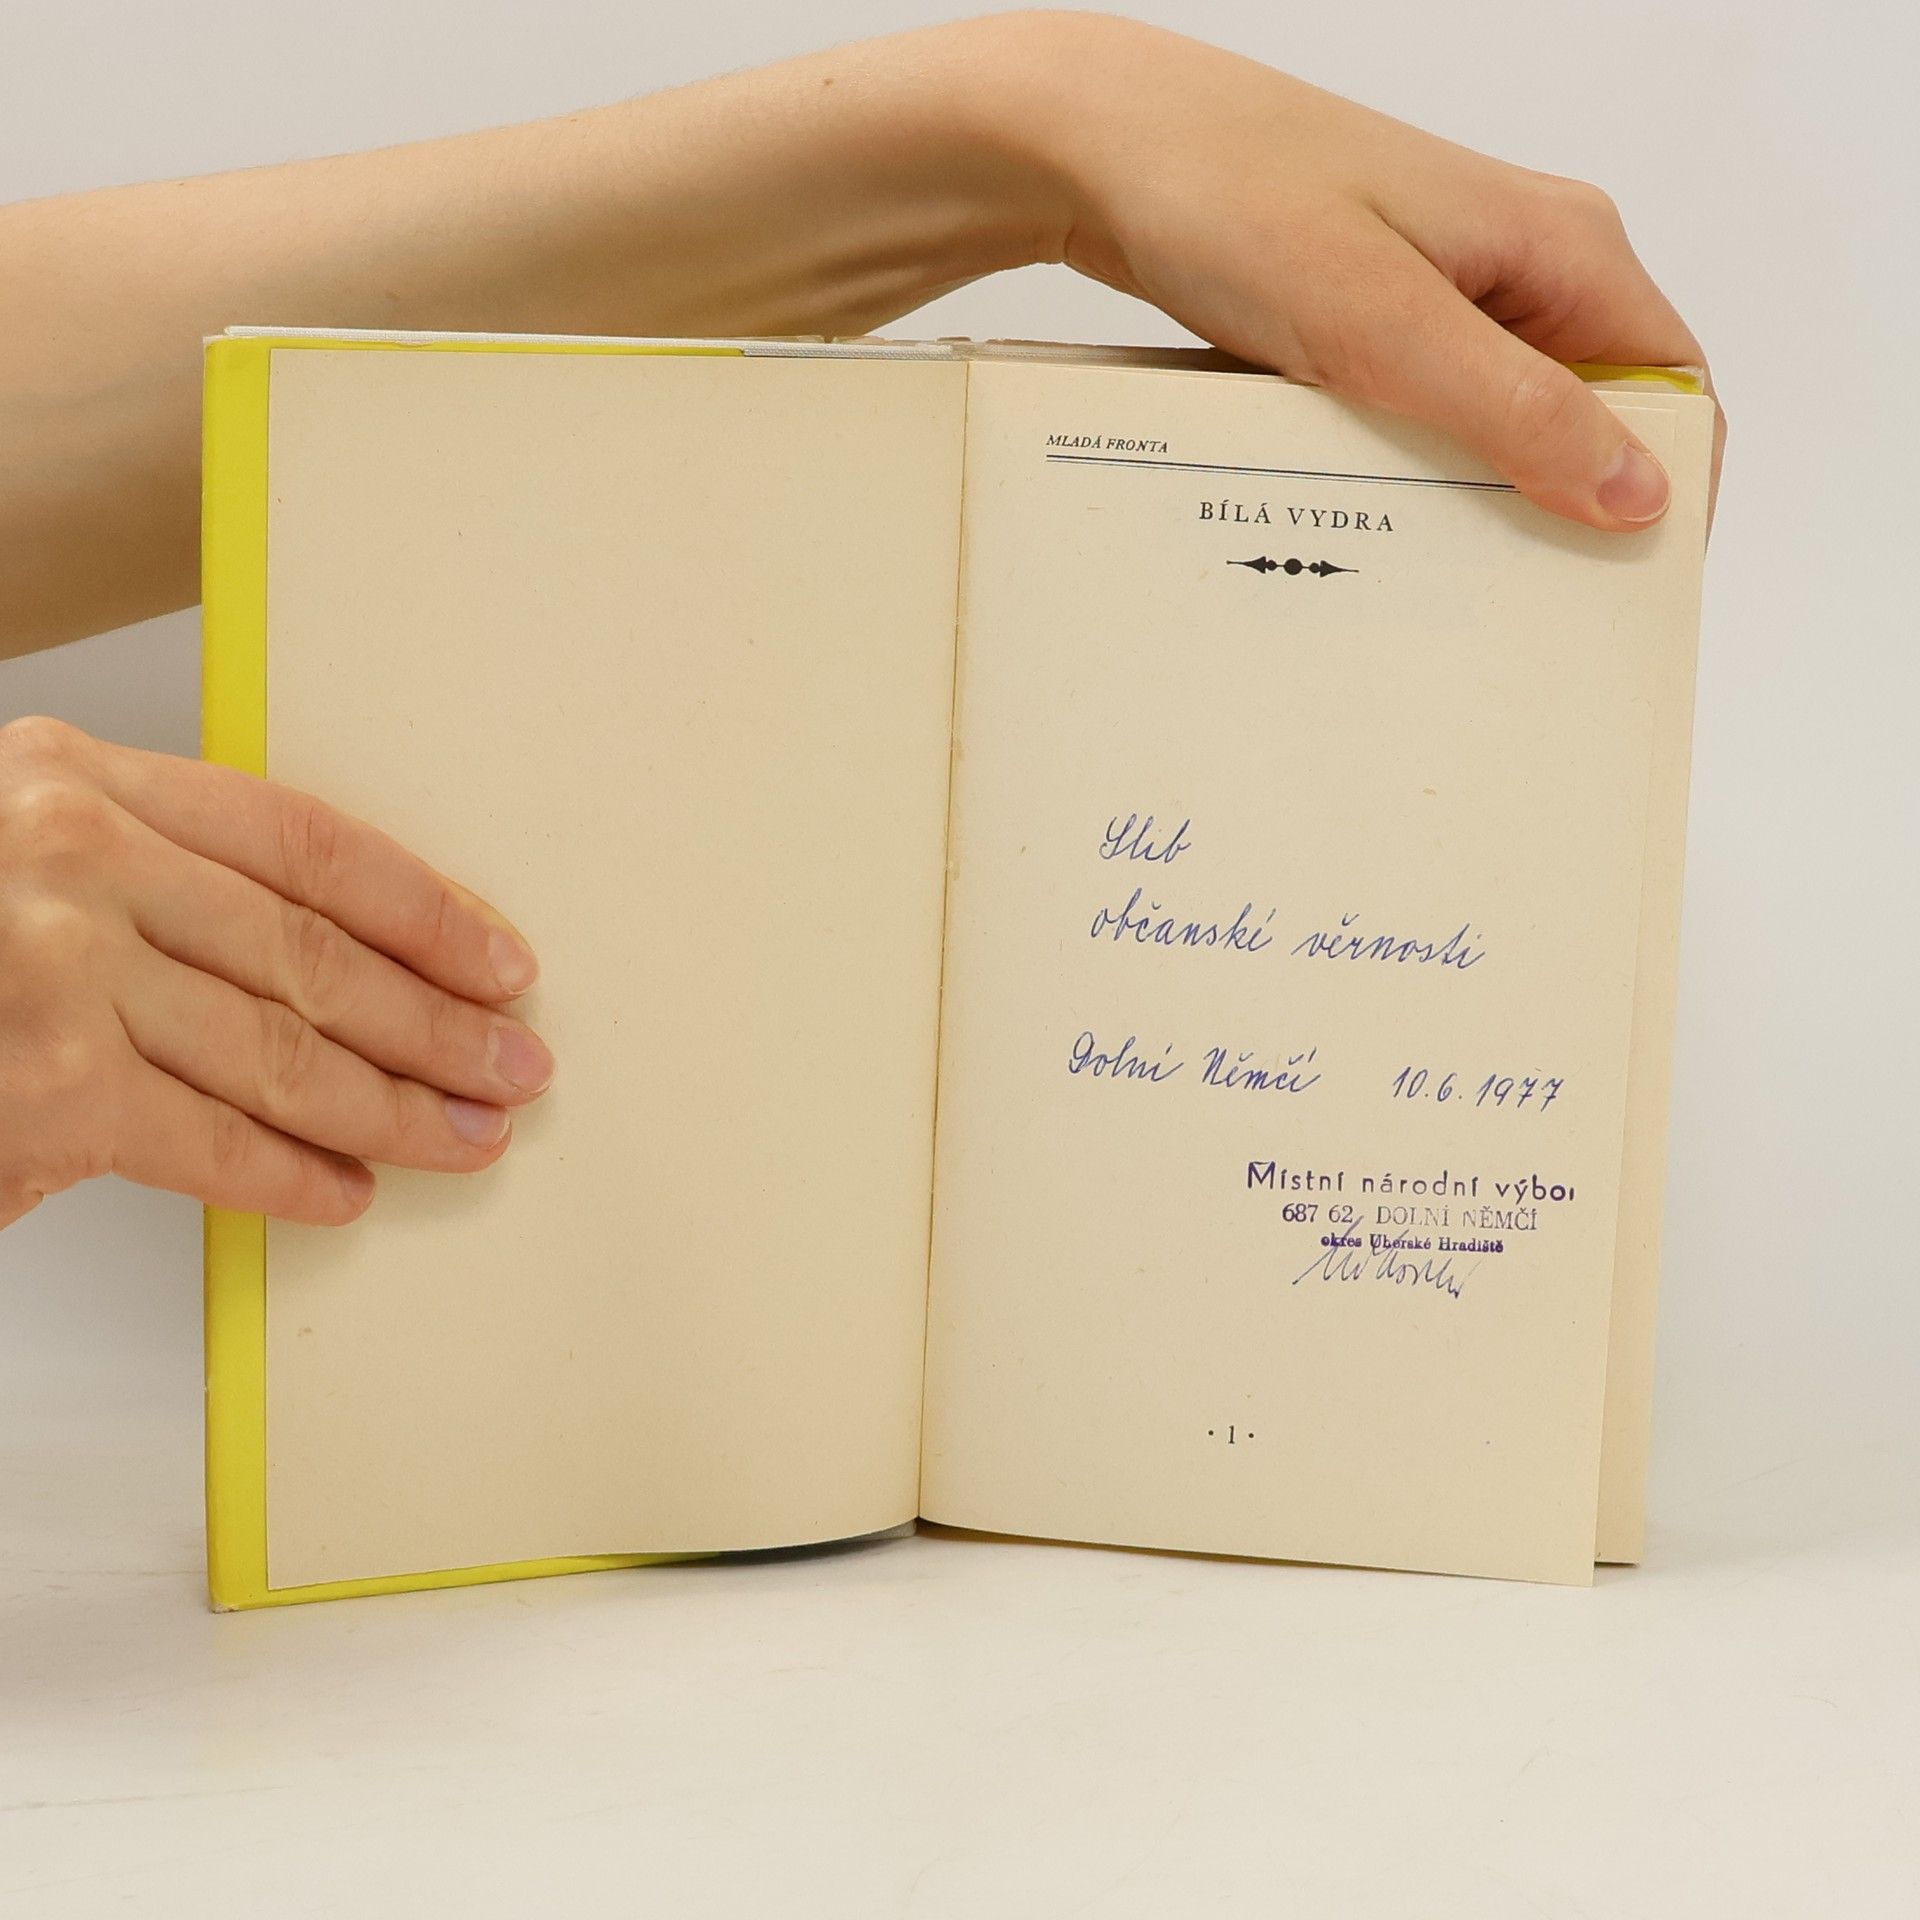 MLADÁ FRONTA
BÍLÁ VYDRA
Slib
občanské věrnosti
Dolní Němčí 10.6.1977
Místní národní výbor
687 62 DOLNÍ NĚMČÍ
okres Uherské Hradiště
· 1 ·